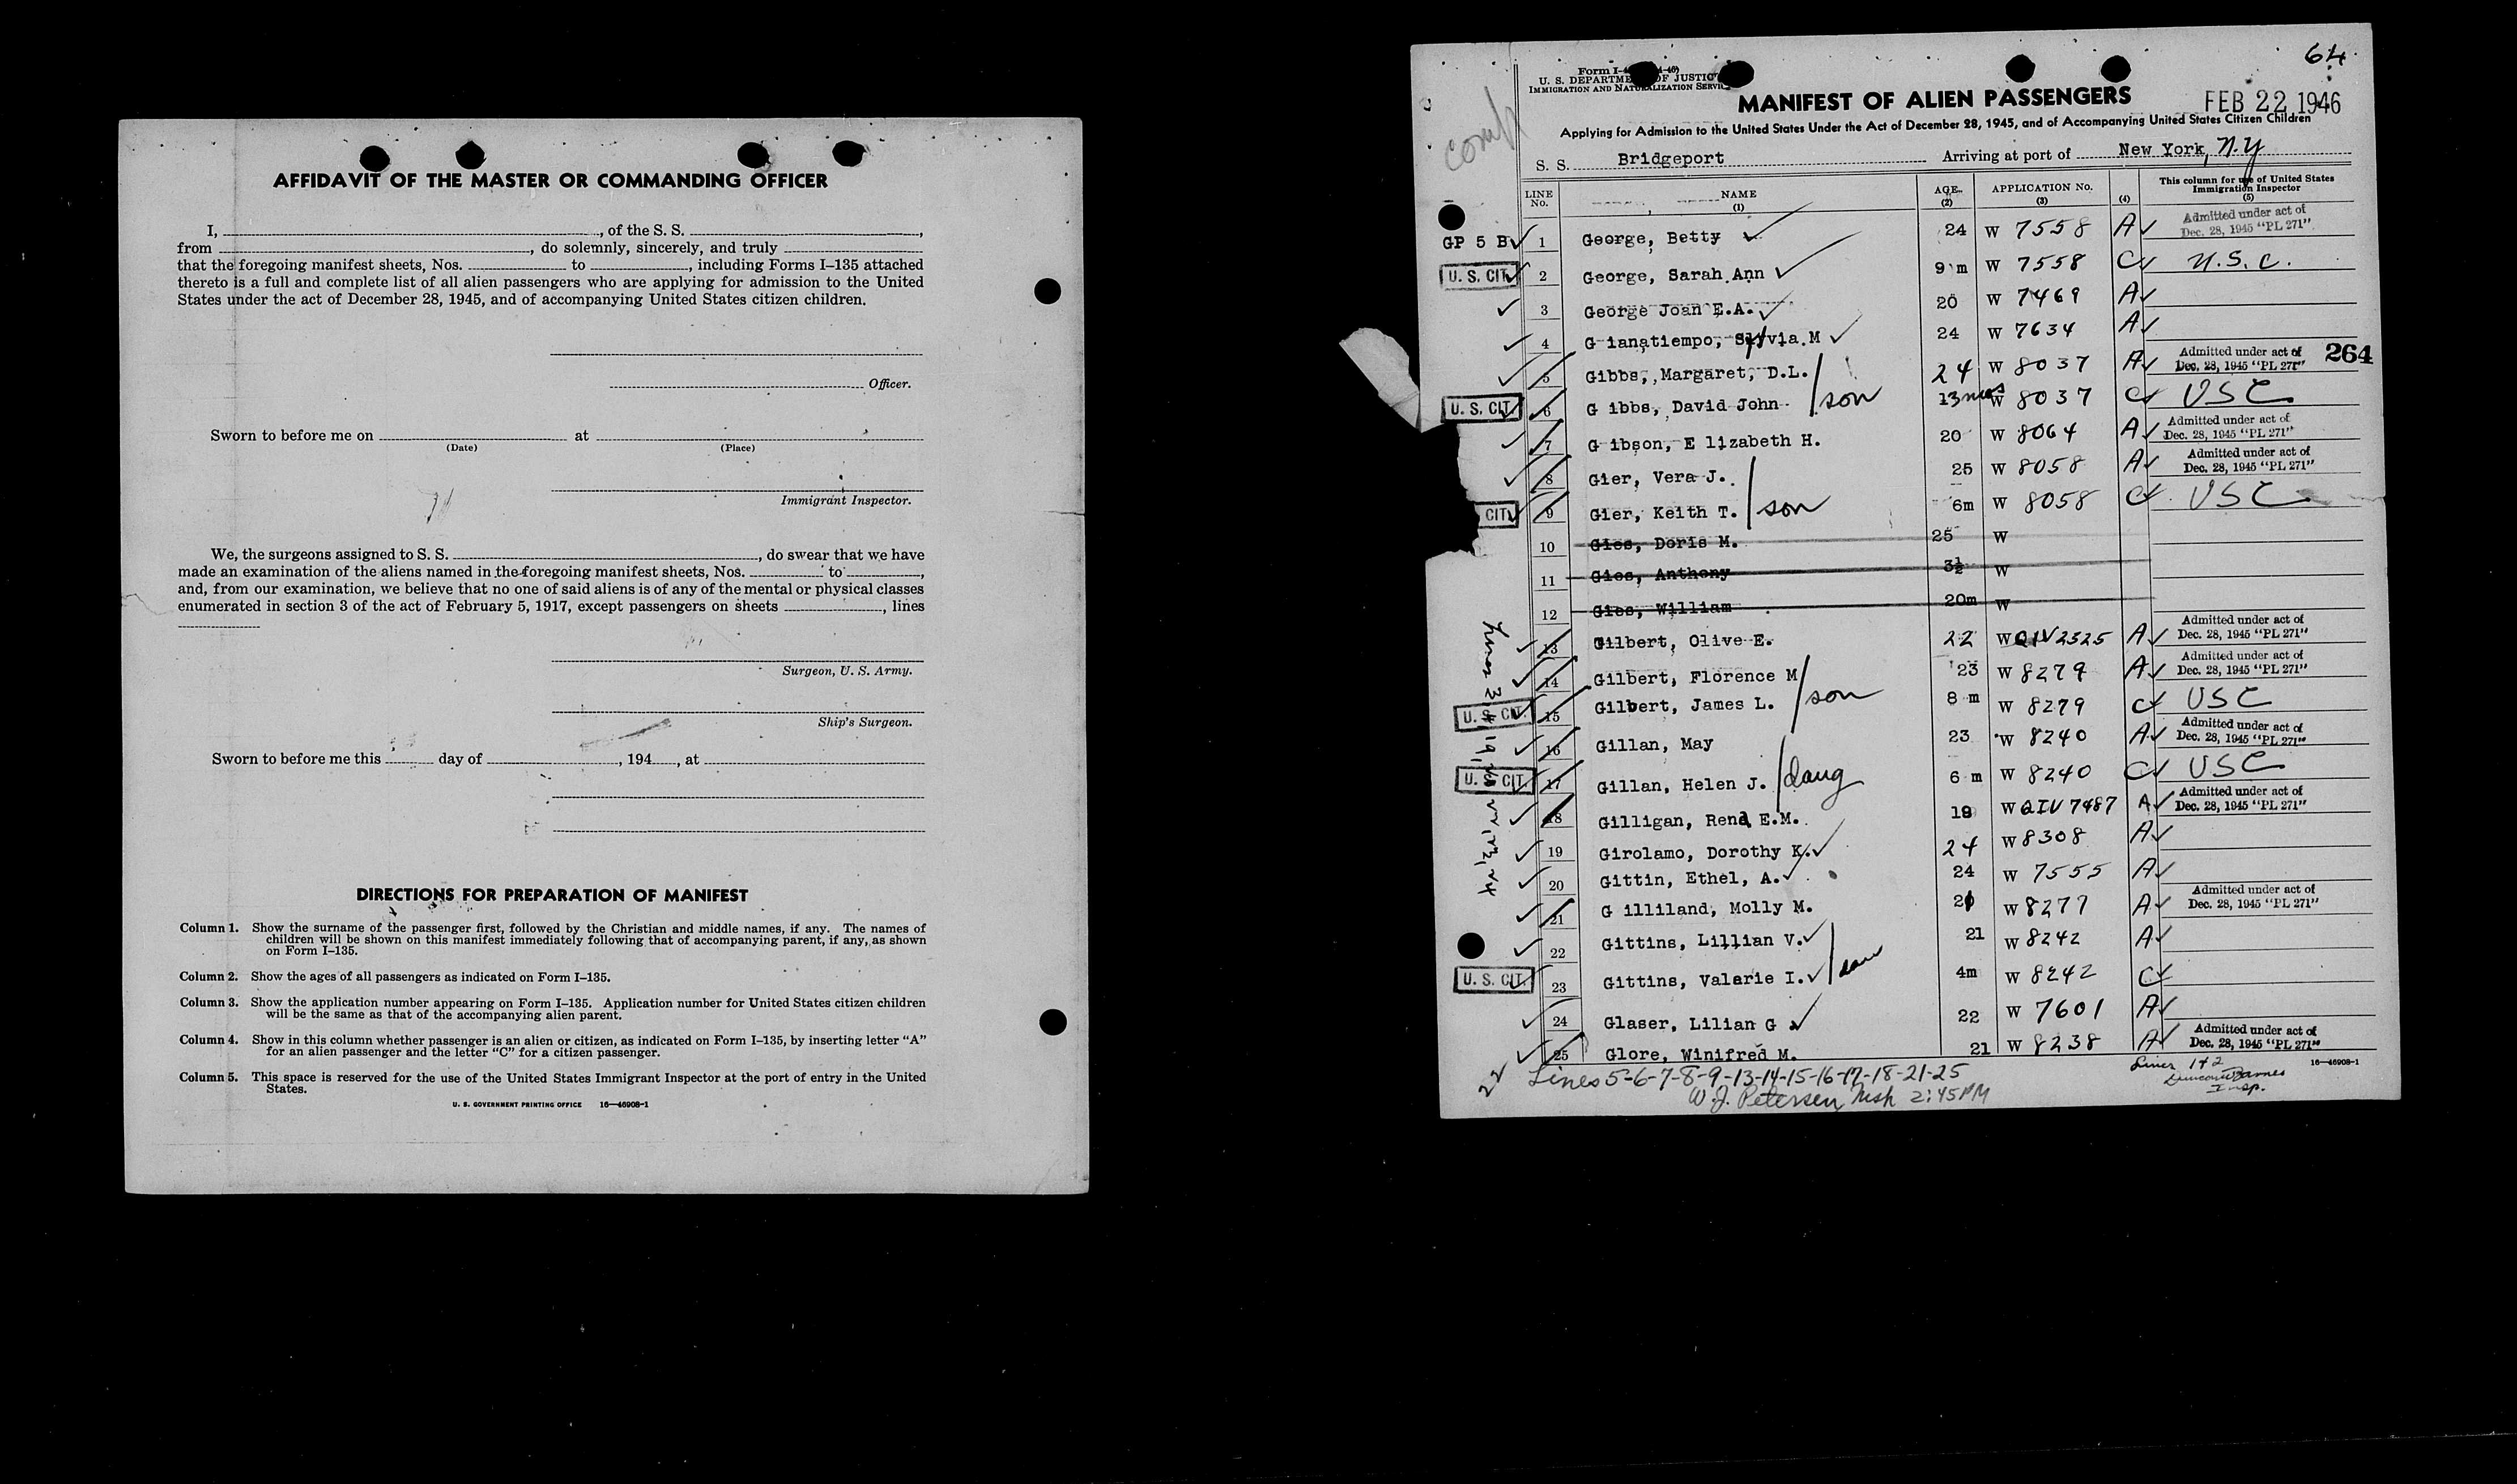 AFFIDAVIT OF THE MASTER OR COMMANDING OFFICER
I, , of the S. S. ,
from , do solemnly, sincerely, and truly
that the foregoing manifest sheets, Nos. to , including Forms I–135 attached
thereto is a full and complete list of all alien passengers who are applying for admission to the United
States under the act of December 28, 1945, and of accompanying United States citizen children.
Officer.
Sworn to before me on at
(Date) (Place)
Immigrant Inspector.
We, the surgeons assigned to S. S. , do swear that we have
made an examination of the aliens named in the foregoing manifest sheets, Nos. to ,
and, from our examination, we believe that no one of said aliens is of any of the mental or physical classes
enumerated in section 3 of the act of February 5, 1917, except passengers on sheets , lines
Surgeon, U. S. Army.
Ship's Surgeon.
Sworn to before me this day of , 194 , at
DIRECTIONS FOR PREPARATION OF MANIFEST
Column 1. Show the surname of the passenger first, followed by the Christian and middle names, if any. The names of
children will be shown on this manifest immediately following that of accompanying parent, if any, as shown
on Form I–135.
Column 2. Show the ages of all passengers as indicated on Form I–135.
Column 3. Show the application number appearing on Form I–135. Application number for United States citizen children
will be the same as that of the accompanying alien parent.
Column 4. Show in this column whether passenger is an alien or citizen, as indicated on Form I–135, by inserting letter “A”
for an alien passenger and the letter “C” for a citizen passenger.
Column 5. This space is reserved for the use of the United States Immigrant Inspector at the port of entry in the United
States.
U. S. GOVERNMENT PRINTING OFFICE 16—46908-1
64
Form I-
U. S. DEPARTMENT OF JUSTICE
IMMIGRATION AND NATURALIZATION SERVICE
comp
MANIFEST OF ALIEN PASSENGERS
FEB 22 1946
Applying for Admission to the United States Under the Act of December 28, 1945, and of Accompanying United States Citizen Children
S. S. Bridgeport Arriving at port of New York, N.Y
LINE No. NAME (1) AGE (2) APPLICATION No. (3) (4) This column for use of United States Immigration Inspector (5)
GP 5 B 1 George, Betty 24 W 7558 A Admitted under act of Dec. 28, 1945 "PL 271"
U. S. CIT. 2 George, Sarah Ann 9 m W 7558 C U.S.C.
3 George Joan E.A. 20 W 7469 A
4 G ianatiempo, Sylvia M 24 W 7634 A
264
5 Gibbs, Margaret, D.L. 24 W 8037 A Admitted under act of Dec. 28, 1945 "PL 271"
U. S. CIT. 6 G ibbs, David John son 13 mos W 8037 C USC
7 G ibson, E lizabeth H. 20 W 8064 A Admitted under act of Dec. 28, 1945 "PL 271"
8 Gier, Vera J. 25 W 8058 A Admitted under act of Dec. 28, 1945 "PL 271"
CIT. 9 Gier, Keith T. son 6m W 8058 C USC
10 Gies, Doris M. 25 W
11 Gies, Anthony 3½ W
12 Gies, William 20m W
13 Gilbert, Olive E. 22 W QIV 2325 A Admitted under act of Dec. 28, 1945 "PL 271"
14 Gilbert, Florence M 23 W 8279 A Admitted under act of Dec. 28, 1945 "PL 271"
U. S. CIT. 15 Gilbert, James L. son 8 m W 8279 C USC
16 Gillan, May 23 W 8240 A Admitted under act of Dec. 28, 1945 "PL 271"
U. S. CIT. 17 Gillan, Helen J. daug 6 m W 8240 C USC
18 Gilligan, Rena E.M. 19 W QIV 7487 A Admitted under act of Dec. 28, 1945 "PL 271"
19 Girolamo, Dorothy K. 24 W 8308 A
20 Gittin, Ethel, A. 24 W 7555 A
21 G illiland, Molly M. 20 W 8277 A Admitted under act of Dec. 28, 1945 "PL 271"
22 Gittins, Lillian V. 21 W 8242 A
U. S. CIT. 23 Gittins, Valerie I. 4m W 8242 C
24 Glaser, Lilian G 22 W 7601 A
25 Glore, Winifred M. 21 W 8238 A Admitted under act of Dec. 28, 1945 "PL 271"
22 Lines 5-6-7-8-9-13-14-15-16-17-18-21-25
W. J. Petersen, Insp 2:45PM
Lines 1+2
Barnes
Insp.
16—46908-1